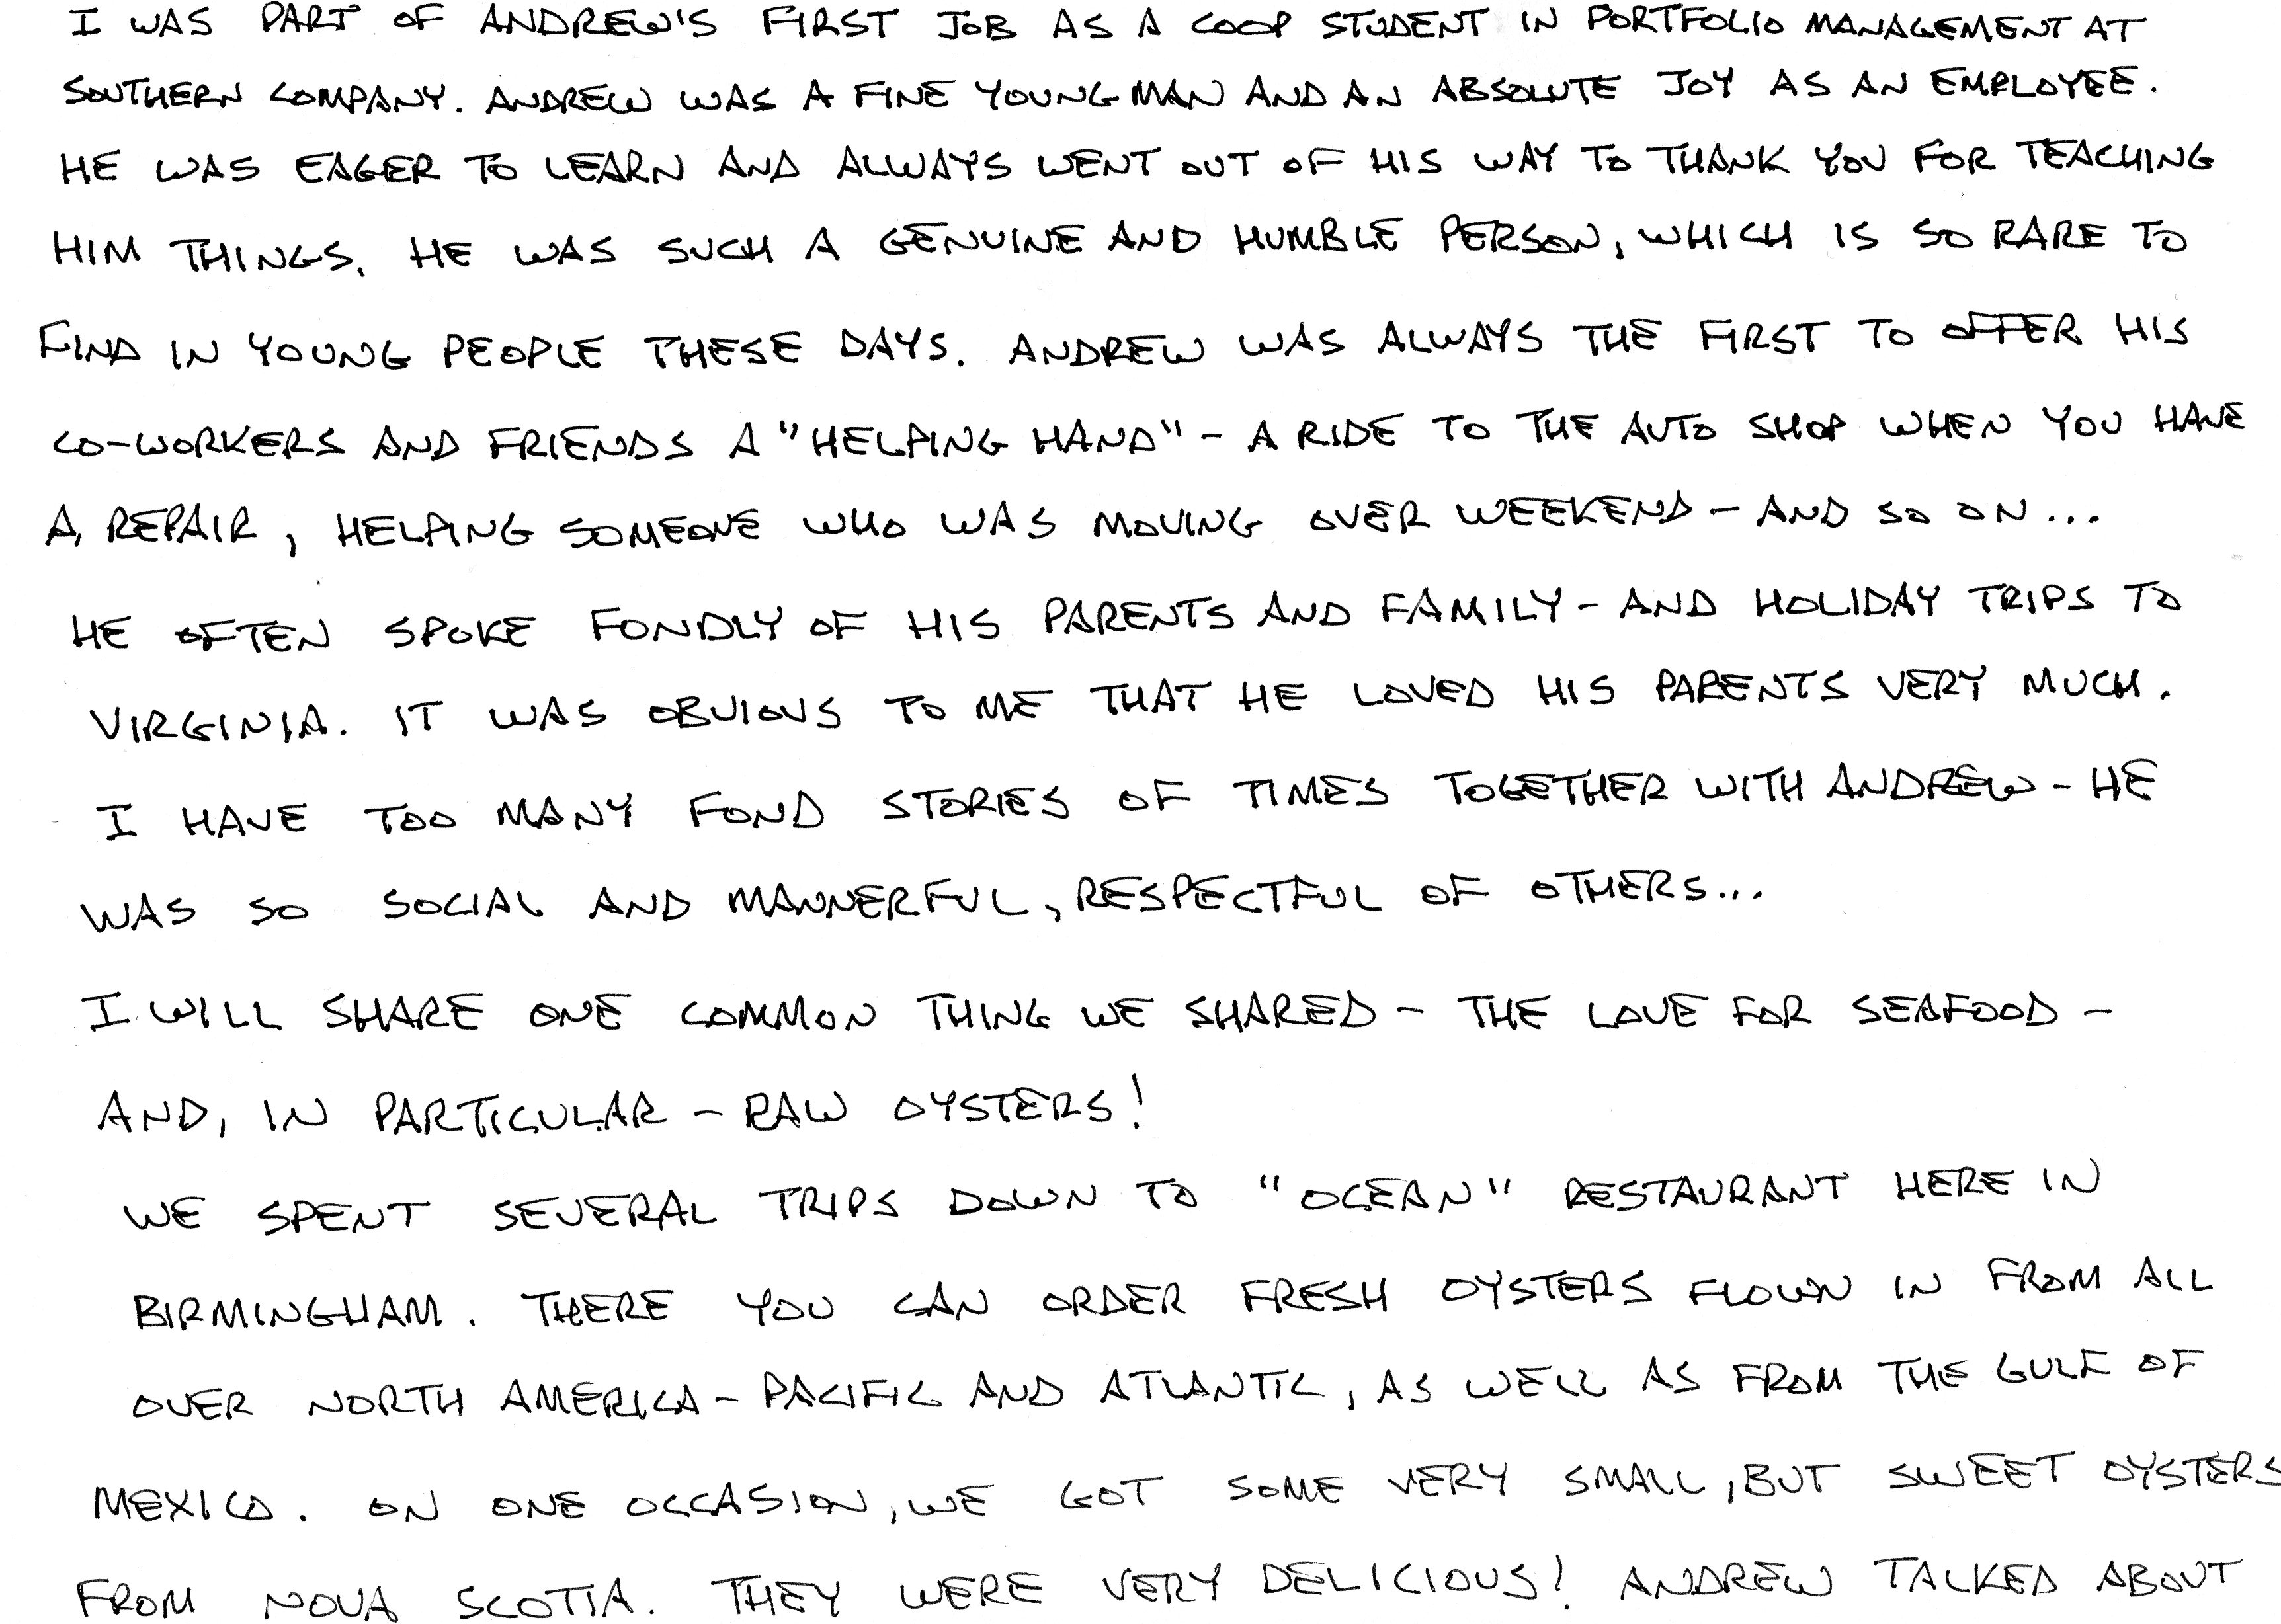 I WAS PART OF ANDREW'S FIRST JOB AS A COOP STUDENT IN PORTFOLIO MANAGEMENT AT
SOUTHERN COMPANY. ANDREW WAS A FINE YOUNG MAN AND AN ABSOLUTE JOY AS AN EMPLOYEE.
HE WAS EAGER TO LEARN AND ALWAYS WENT OUT OF HIS WAY TO THANK YOU FOR TEACHING
HIM THINGS. HE WAS SUCH A GENUINE AND HUMBLE PERSON, WHICH IS SO RARE TO
FIND IN YOUNG PEOPLE THESE DAYS. ANDREW WAS ALWAYS THE FIRST TO OFFER HIS
CO-WORKERS AND FRIENDS A "HELPING HAND" - A RIDE TO THE AUTO SHOP WHEN YOU HAVE
A REPAIR, HELPING SOMEONE WHO WAS MOVING OVER WEEKEND - AND SO ON...
HE OFTEN SPOKE FONDLY OF HIS PARENTS AND FAMILY - AND HOLIDAY TRIPS TO
VIRGINIA. IT WAS OBVIOUS TO ME THAT HE LOVED HIS PARENTS VERY MUCH.
I HAVE TOO MANY FOND STORIES OF TIMES TOGETHER WITH ANDREW - HE
WAS SO SOCIAL AND MANNERFUL, RESPECTFUL OF OTHERS...
I WILL SHARE ONE COMMON THING WE SHARED - THE LOVE FOR SEAFOOD -
AND, IN PARTICULAR - RAW OYSTERS!
WE SPENT SEVERAL TRIPS DOWN TO "OCEAN" RESTAURANT HERE IN
BIRMINGHAM. THERE YOU CAN ORDER FRESH OYSTERS FLOWN IN FROM ALL
OVER NORTH AMERICA - PACIFIC AND ATLANTIC, AS WELL AS FROM THE GULF OF
MEXICO. ON ONE OCCASION, WE GOT SOME VERY SMALL, BUT SWEET OYSTERS
FROM NOVA SCOTIA. THEY WERE VERY DELICIOUS! ANDREW TALKED ABOUT